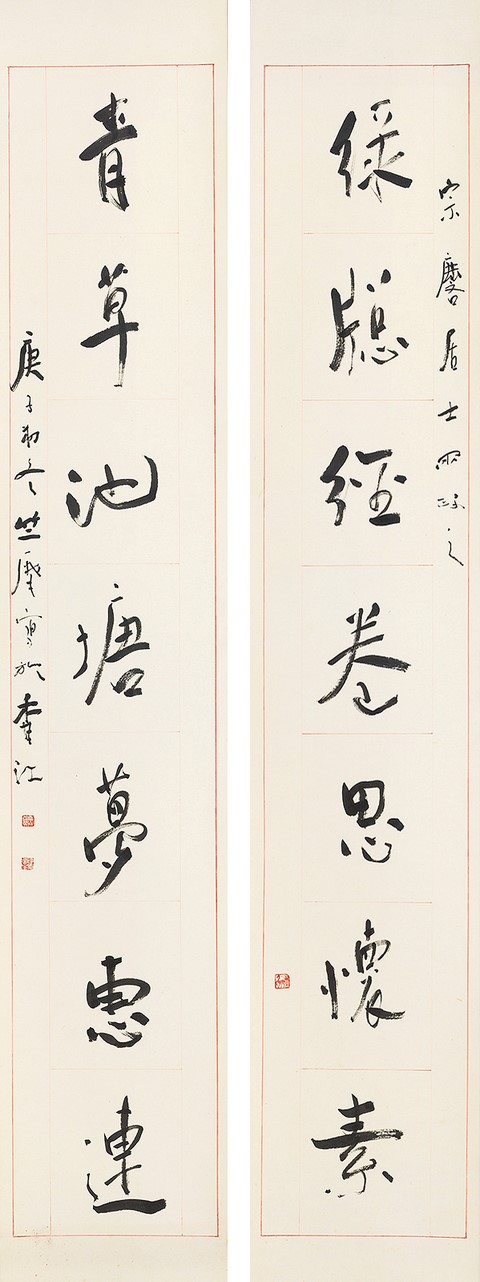 綠牕經卷思懷素
宗麐居士兩政之
青草池塘夢惠連
庚子初冬竺摩寫於香江